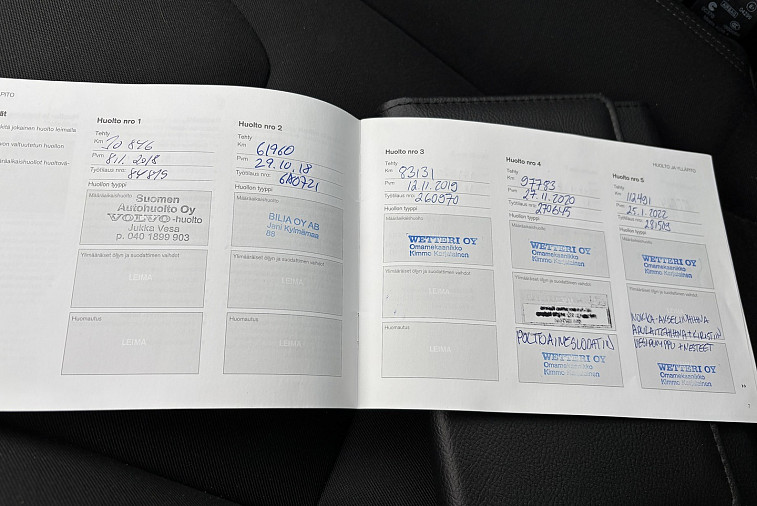 Huolto nro 1
Tehty
Km
Pvm 8.1. 2018
Työtilaus nro: 84819
Huollon tyyppi
Määräaikaishuolto
Suomen
Autohuolto Oy
VOLVO-huolto
Jukka Vesa
p. 040 1899 903
Ylimääräiset öljyn ja suodattimen vaihdot
LEIMA
Huomautus
LEIMA
Huolto nro 2
Tehty
Km 61960
Pvm 29.10.18
Työtilaus nro:
Huollon tyyppi
Määräaikaishuolto
BILIA OY AB
Jani Kylmämaa
88
Ylimääräiset öljyn ja suodattimen vaihdot
LEIMA
Huomautus
LEIMA
Huolto nro 3
Tehty
Km 83131
Pvm 12.11.2019
Työtilaus nro: 260970
Huollon tyyppi
Määräaikaishuolto
WETTERI OY
Omamekaanikko
Kimmo Karjalainen
Ylimääräiset öljyn ja suodattimen vaihdot
LEIMA
Huomautus
LEIMA
Huolto nro 4
Tehty
Km 97783
Pvm 27.11.2020
Työtilaus nro: 270645
Huollon tyyppi
Määräaikaishuolto
WETTERI OY
Omamekaanikko
Kimmo Karjalainen
Ylimääräiset öljyn ja suodattimen vaihdot
POLTTOAINESUODATIN
WETTERI OY
Omamekaanikko
Kimmo Karjalainen
HUOLTO JA YLLÄPITO
Huolto nro 5
Tehty
Km 112491
Pvm 25.1.2022
Työtilaus nro:
Huollon tyyppi
Määräaikaishuolto
WETTERI OY
Omamekaanikko
Kimmo Karjalainen
Ylimääräiset öljyn ja suodattimen vaihdot
NOKKA-AKSELINHIHNA
APULAITEHIHNA + KIRISTIN
VESIPUMPPU + NESTEET
WETTERI OY
Omamekaanikko
Kimmo Karjalainen
7